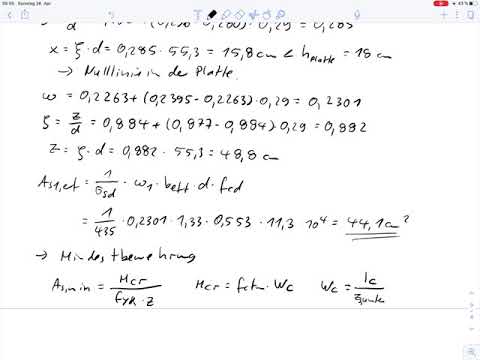 09:55 Sonntag 26. Apr.
43 %
x = ξ · d = 0,285 · 55,3 = 15,8 cm < hplatte = 18 cm
→ Nulllinie in der Platte.
ω = 0,2263 + (0,2395 - 0,2263) · 0,29 = 0,2301
ζ = z/d = 0,884 + (0,877 - 0,884) 0,29 = 0,882
z = ζ · d = 0,882 · 55,3 = 48,8 cm
As1,erf = 1/σsd · ω1 · beff · d · fcd
= 1/435 · 0,2301 · 1,33 · 0,553 · 11,3 · 10⁴ = 44,1 cm²
→ Mindestbewehrung
As,min = Mcr / (fyk · z) Mcr = fctm · Wc Wc = Ic / zs,unten